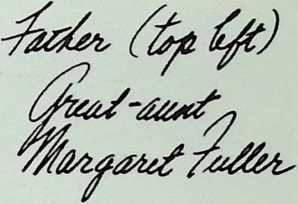 Father (top left)
Great-aunt
Margaret Fuller